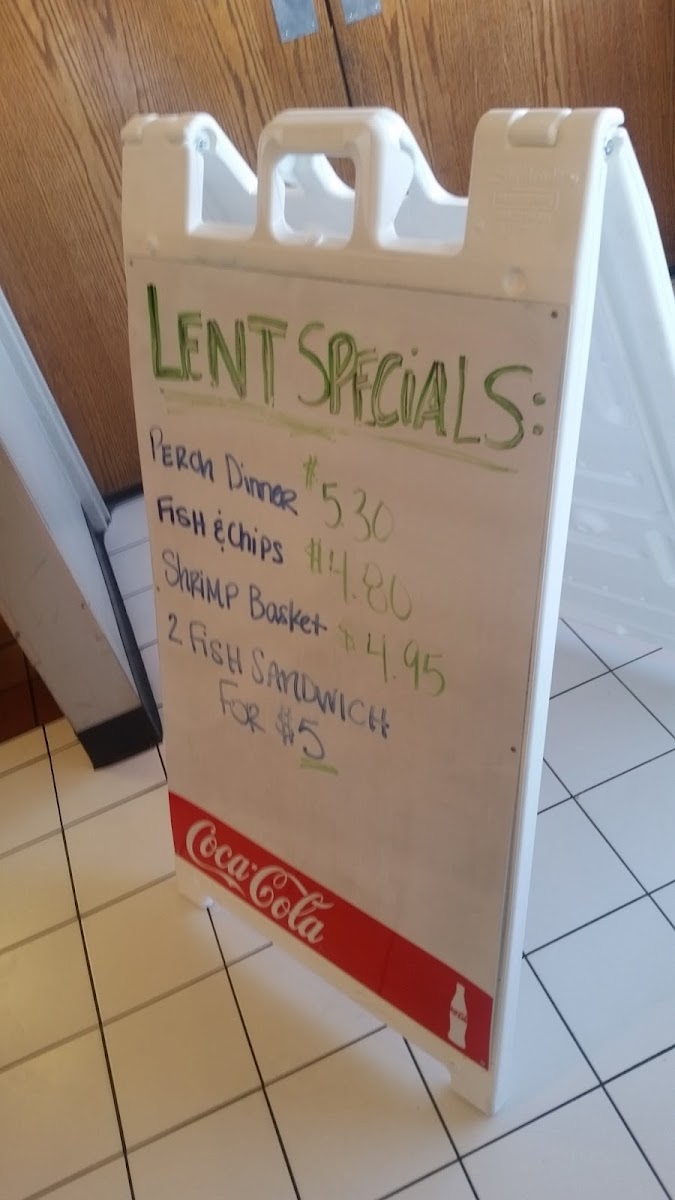 LENT SPECiALS:
PERCH DinnER $5.30
FiSH & CHiPS $4.80
SHRiMP Basket $4.95
2 FiSH SANDWICH
FOR $5
Coca-Cola